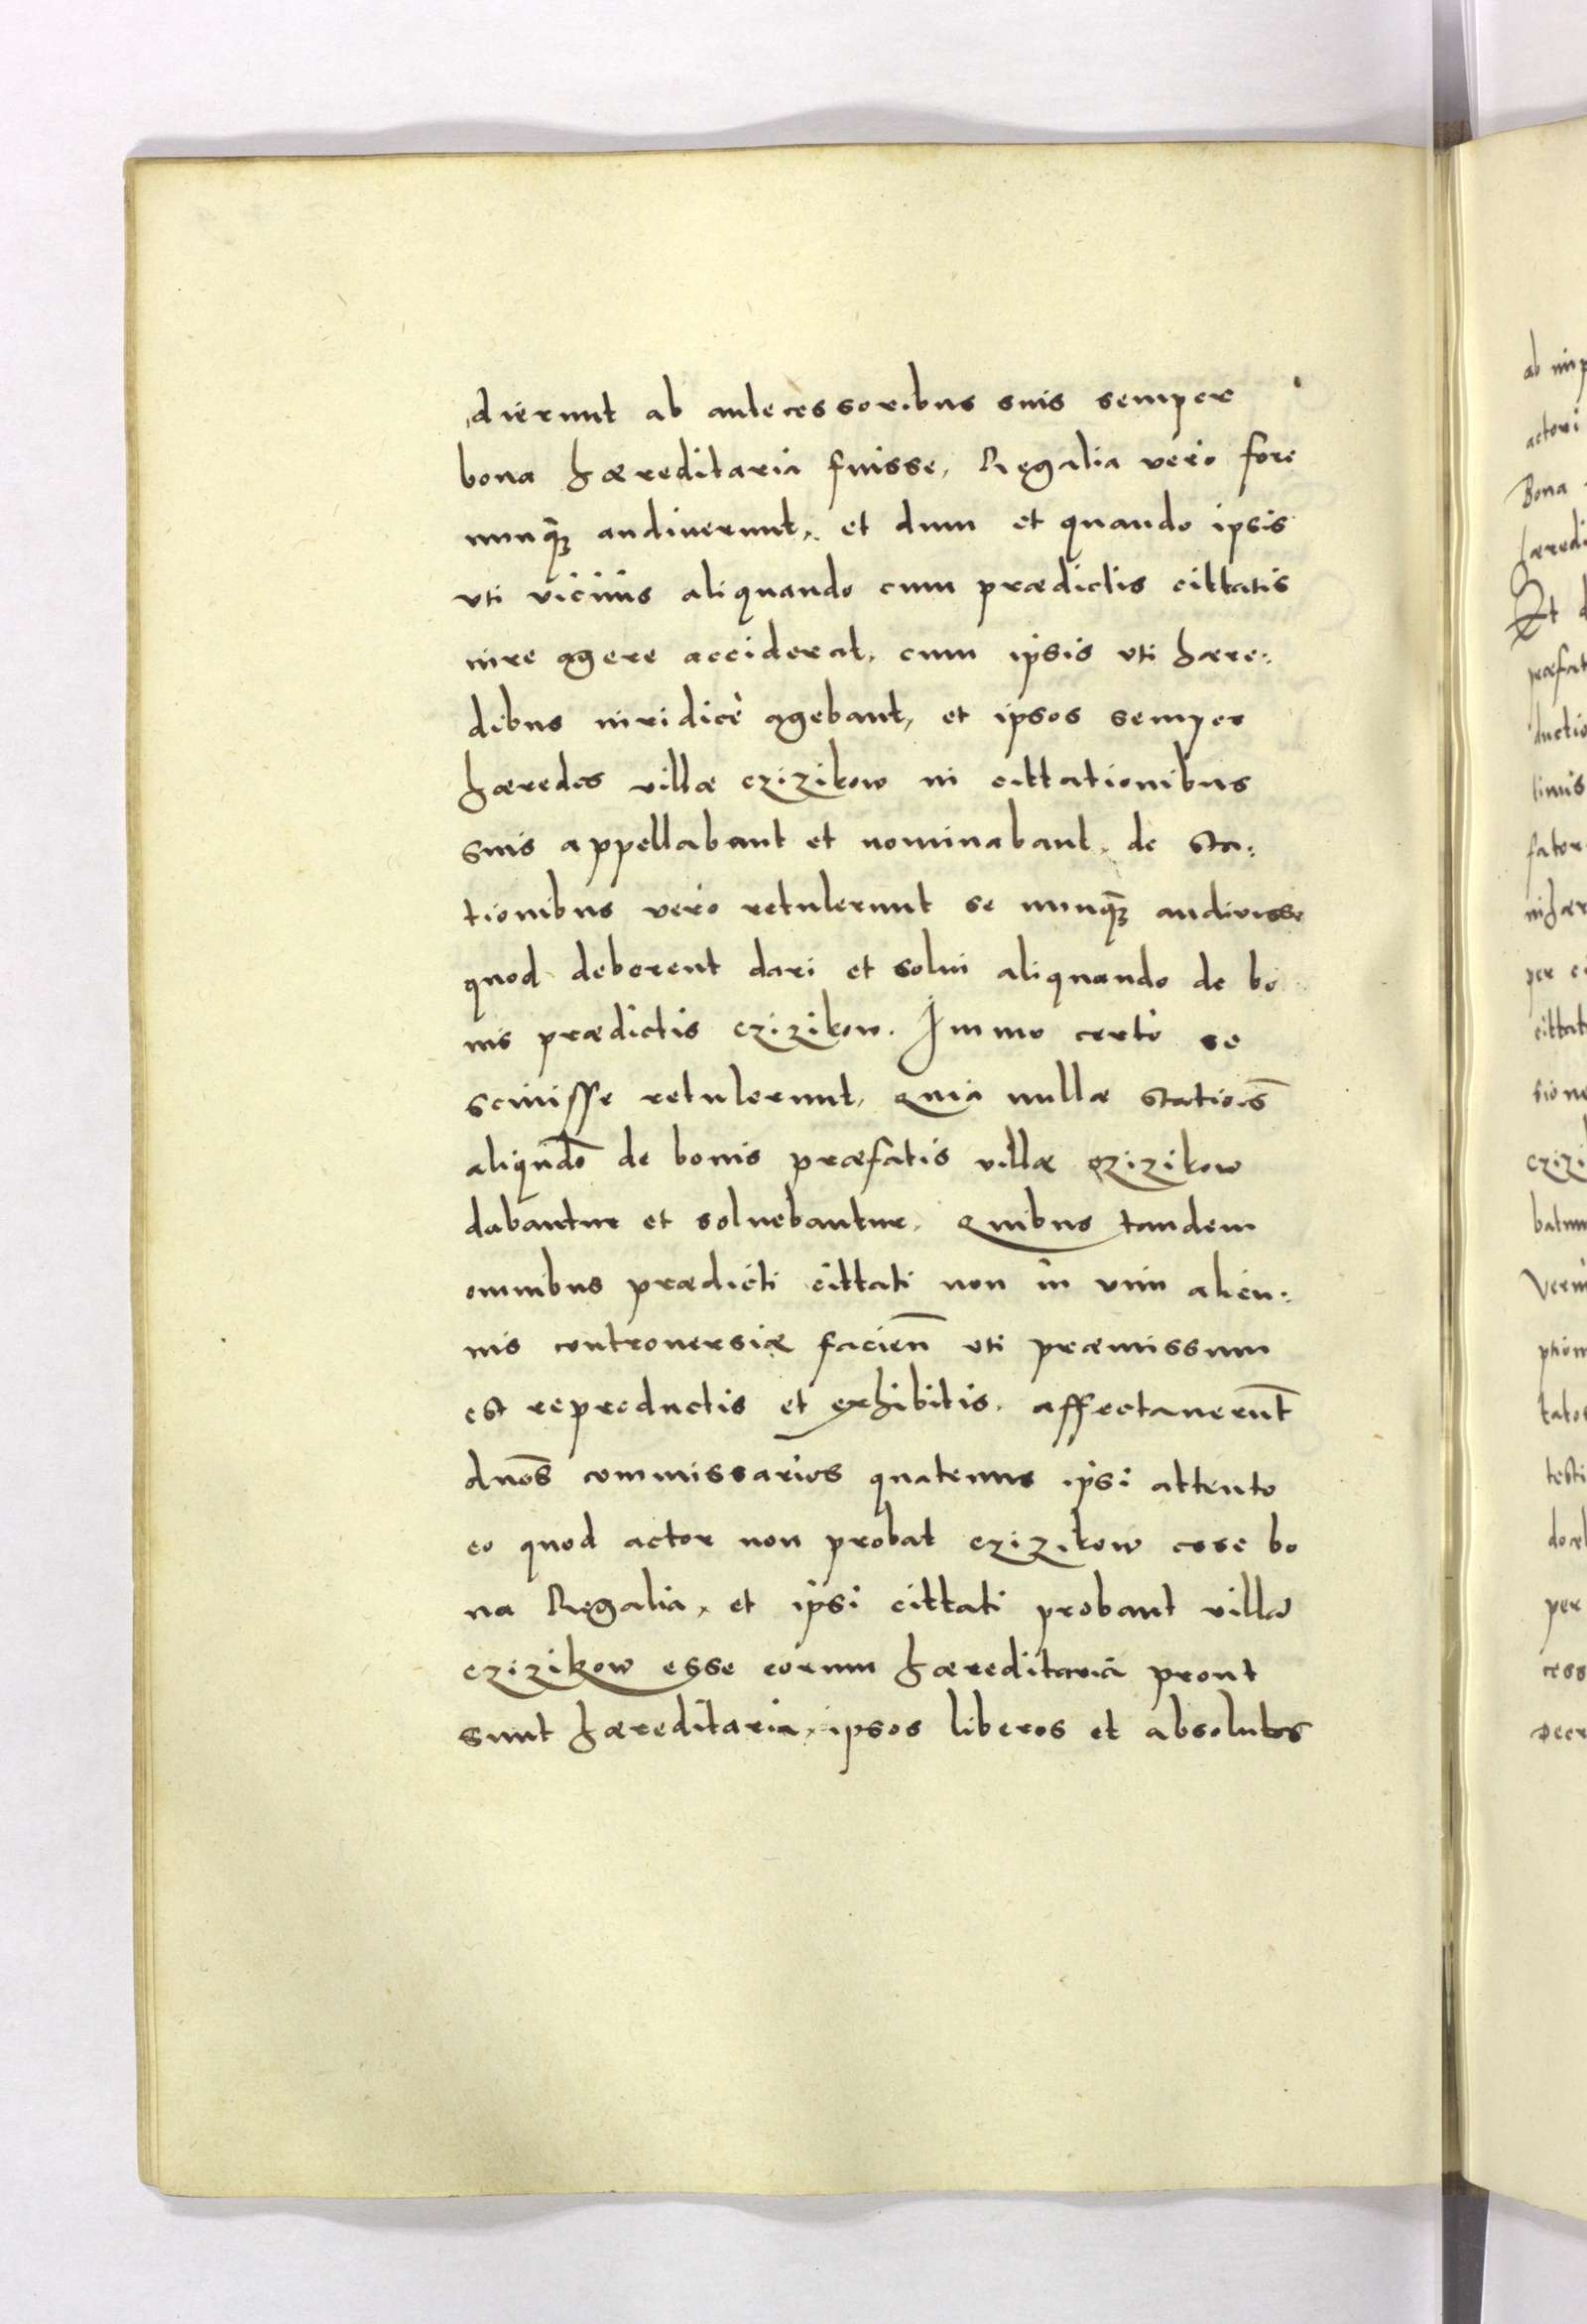 dierunt ab antecessoribus suis semper
bona hæreditaria fuisse, Regalia vero fore
nunq̃ꝫ audiuerunt, et dum et quando ipsis
vti vicinis aliquando cum prædictis cittatis
iure agere acciderat, cum ipsis vti hære:
dibus iuridicè agebant, et ipsos semper
hæredes villæ czizikow in cittationibus
suis appellabant et nominabant, de sta:
tionibus verò retulerunt se nunq̃ꝫ audiuisse
quod deberent dari et solui aliquando de bo
nis prædictis czizikow. Immo certò se
sciuisse retulerunt, quia nullæ statioēs
aliqñdo de bonis præfatis villæ czizikow
dabantur et soluebantur. Quibus tandem
omnibus prædicti cittati non in vim alicu:
ius controuersiæ facien̄ vti præmissum
est reproductis et exhibitis. affectauerunt̄
dnōs commissarios quatenus ipsi attento
eo quod actor non probat czizikow esse bo
na Regalia, et ipsi cittati probant villā
czizikow esse eorum hæreditaria prout
sunt hæreditaria, ipsos liberos et absolutos
ab
actori
Bona
hæredi
Et d
præfat
ductio
timis
fator
per
cittat
sione
czizi
tatos
testi
per
cess
Decr